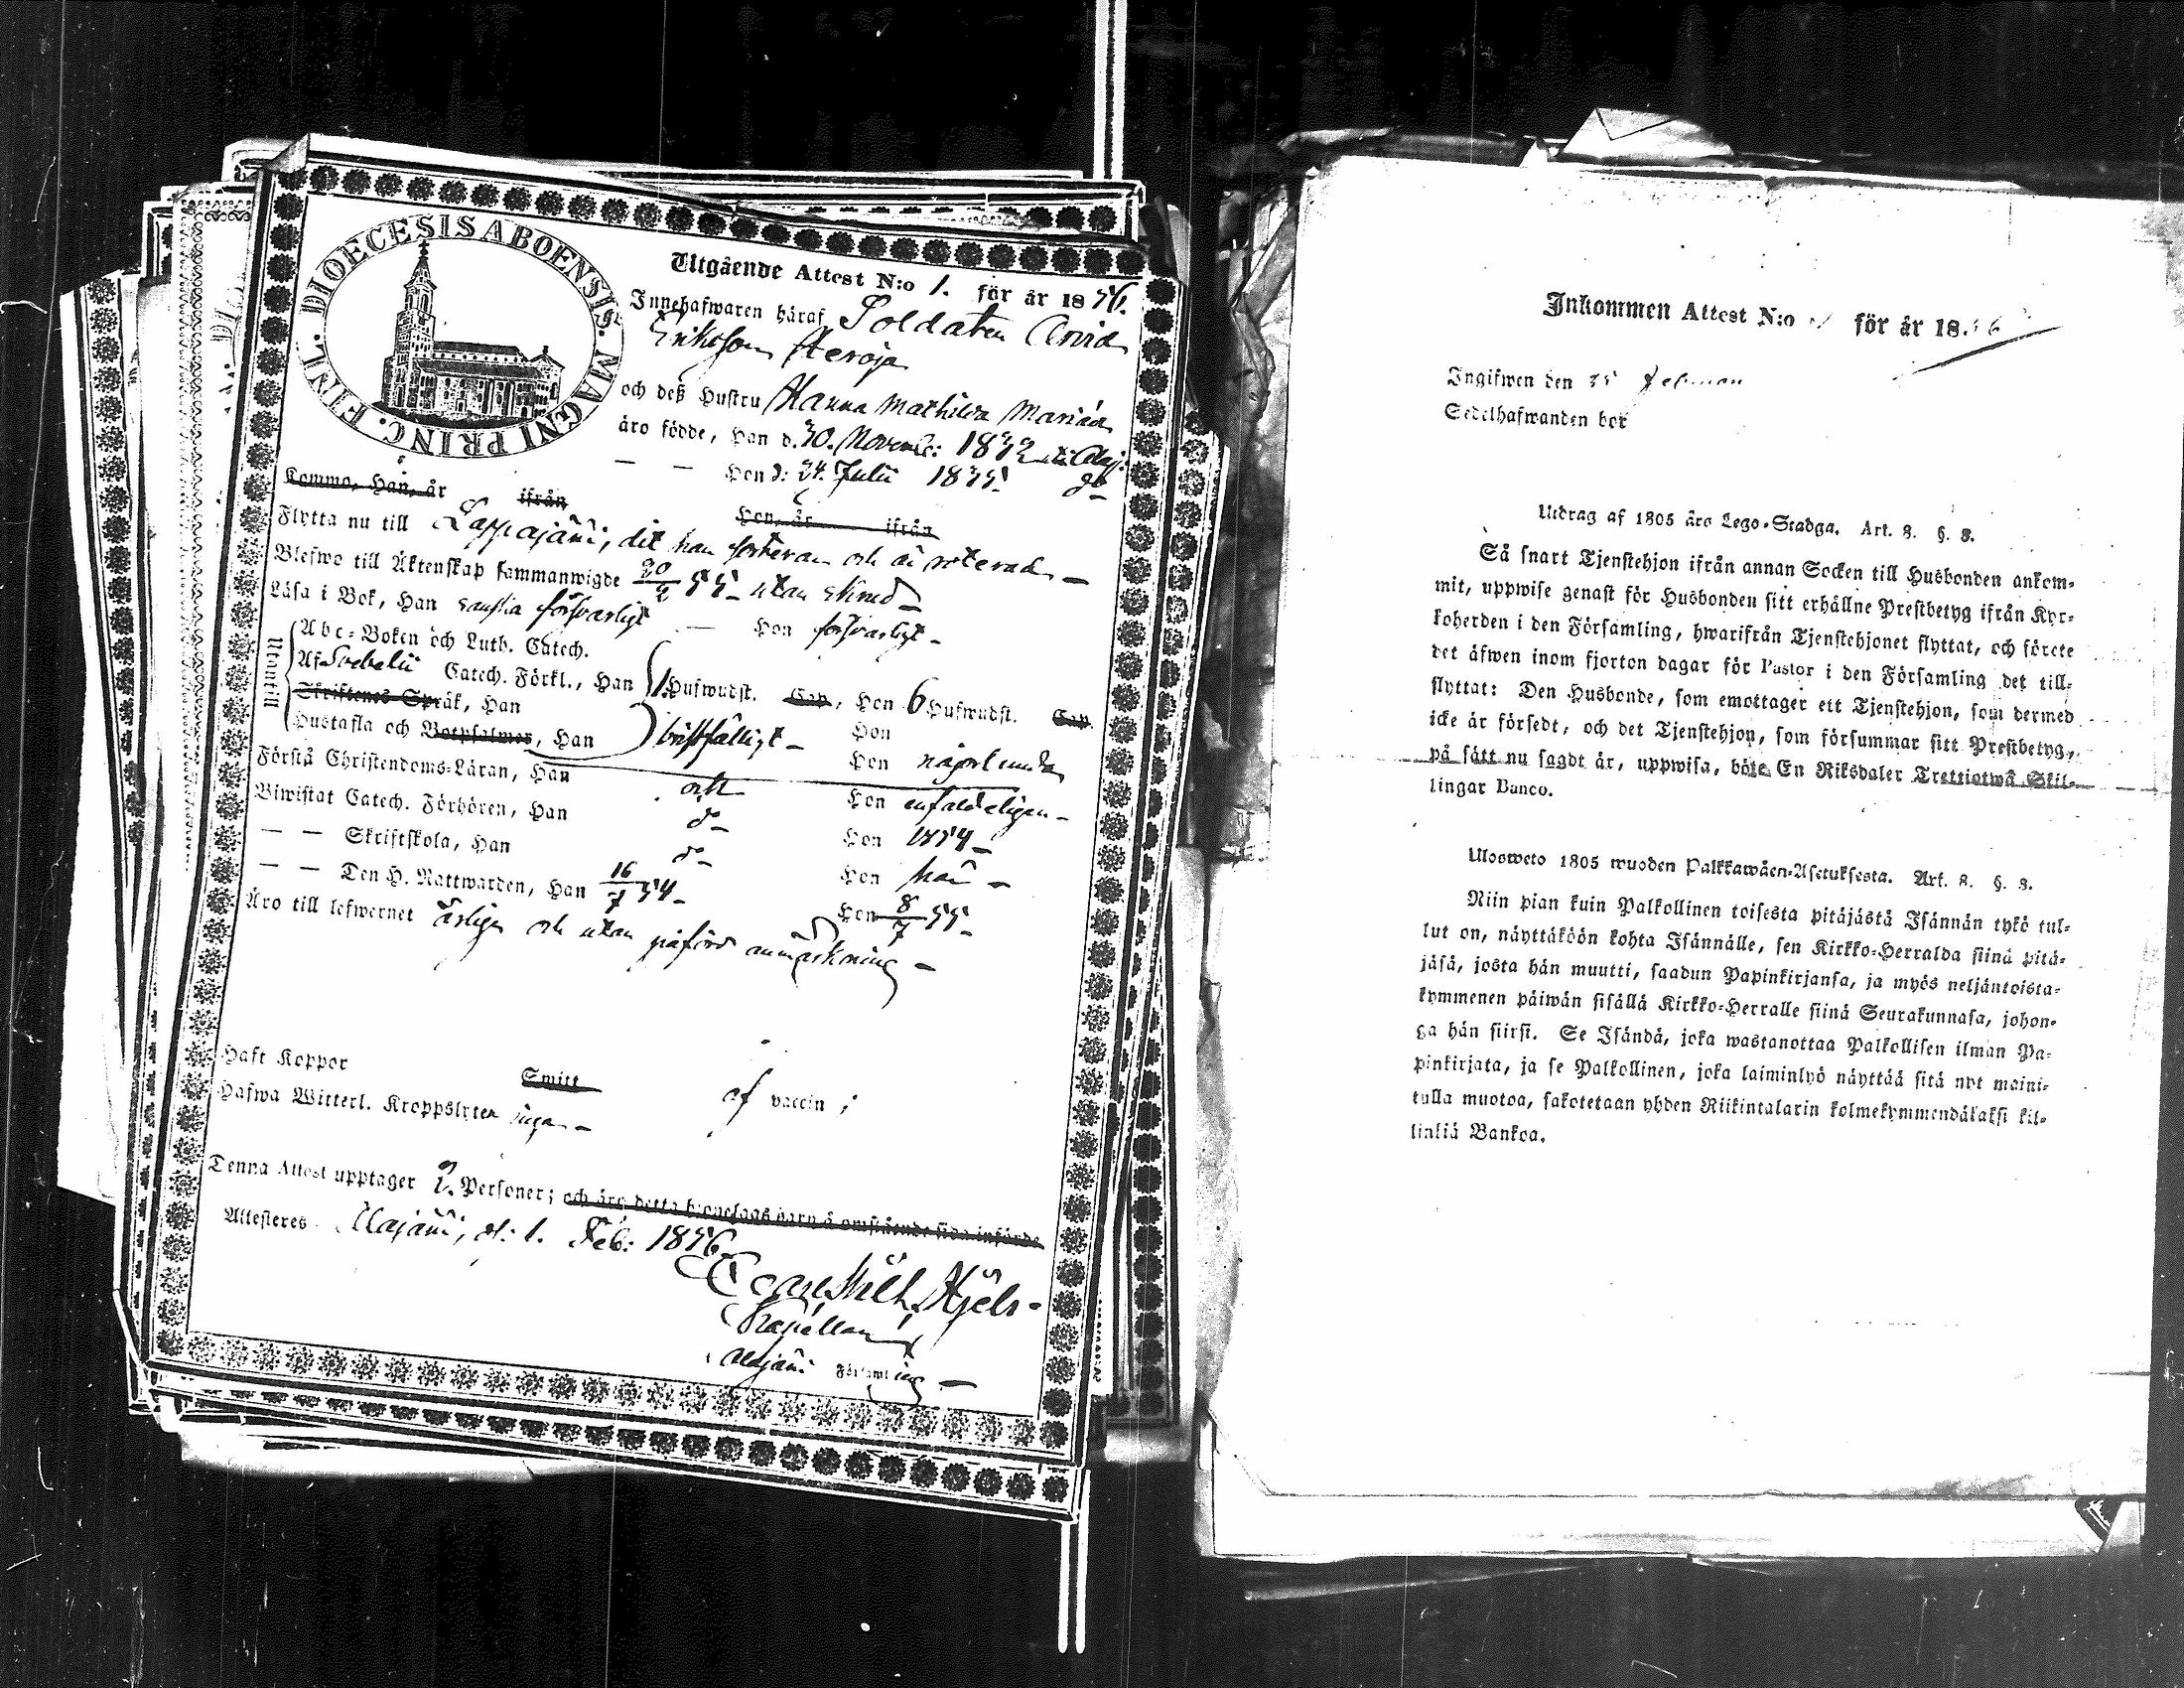 FINL. DIOECESIS ABOENSIS. MAGNI PRINC.
Utgående Attest N:o 1. för år 1856.
Innehafwaren häraf Soldaten Arvid
Eriksson
och deß Hustru Hanna Mathilda
äro födde, Han d. 30. Novemb: 1832
— — Hon d: 24. Julii 1835 do
Komma, Han, år ifrån Hon, år ifrån
Flytta nu till Lappajärvi, dit han och är roterad —
Blefwo till Äktenskap sammanwigde 20/2 55 utan —
Läsa i Bok, Han försvarligt — Hon försvarligt —
Utantill
Abc-Boken och Luth. Catech.
Af Svebelii Catech. Förkl., Han 1 Hufwudst. Cap, Hon 6 Hufwudst. Cap.
Skriftenes Språk, Han Hon
Hustafla och Botpsalmer, Han bristfälligt — Hon någorlunda
Förstå Christendoms-Läran, Han Hon enfaldeligen —
Biwistat Catech. Förhören, Han do — Hon 1854 —
— — Skriftskola, Han do — Hon —
— — Den H. Nattwarden, Han 16/7 54 — Hon 8/7 55 —
Äro till lefwernet ärliga och utan påförd anmärkning —
Haft Koppor Smitt af vaccin ;
Hafwa Witterl. Kroppslyten inga —
Denna Attest upptager 2. Personer; och äro detta hionelags barn å omstående sida införde
Attesteres Alajärvi, d: 1. Feb: 1856
Kapellan
Alajärvi Församling —
Inkommen Attest N:o för år 1856
Ingifwen den Februari
Sedelhafwanden bor
Utdrag af 1805 års Lego-Stadga. Art. 8. §. 8.
Så snart Tjenstehjon ifrån annan Socken till Husbonden ankom-
mit, uppwise genast för Husbonden sitt erhållne Prestbetyg ifrån Kyr-
koherden i den Församling, hwarifrån Tjenstehjonet flyttat, och förete
det äfwen inom fjorton dagar för Pastor i den Församling det till-
flyttat: Den Husbonde, som emottager ett Tjenstehjon, som dermed
icke är försedt, och det Tjenstehjon, som försummar sitt Prestbetyg,
på sätt nu sagdt är, uppwisa, böte En Riksdaler Trettiotwå Skil-
lingar Banco.
Ulosweto 1805 wuoden Palkkawäen-Asetuksesta. Art. 8. §. 8.
Niin pian kuin Palkollinen toisesta pitäjästä Isännän tykö tul-
lut on, näyttäköön kohta Isännälle, sen Kirkko-Herralda siinä pitä-
jäsä, josta hän muutti, saadun Papinkirjansa, ja myös neljäntoista-
kymmenen päiwän sisällä Kirkko-Herralle siinä Seurakunnasa, johon-
ga hän siirsi. Se Isändä, joka wastanottaa Palkollisen ilman Pa-
pinkirjata, ja se Palkollinen, joka laiminlyö näyttää sitä nyt maini-
tulla muotoa, sakotetaan yhden Riikintalarin kolmekymmendäkaksi kil-
linkiä Bankoa.